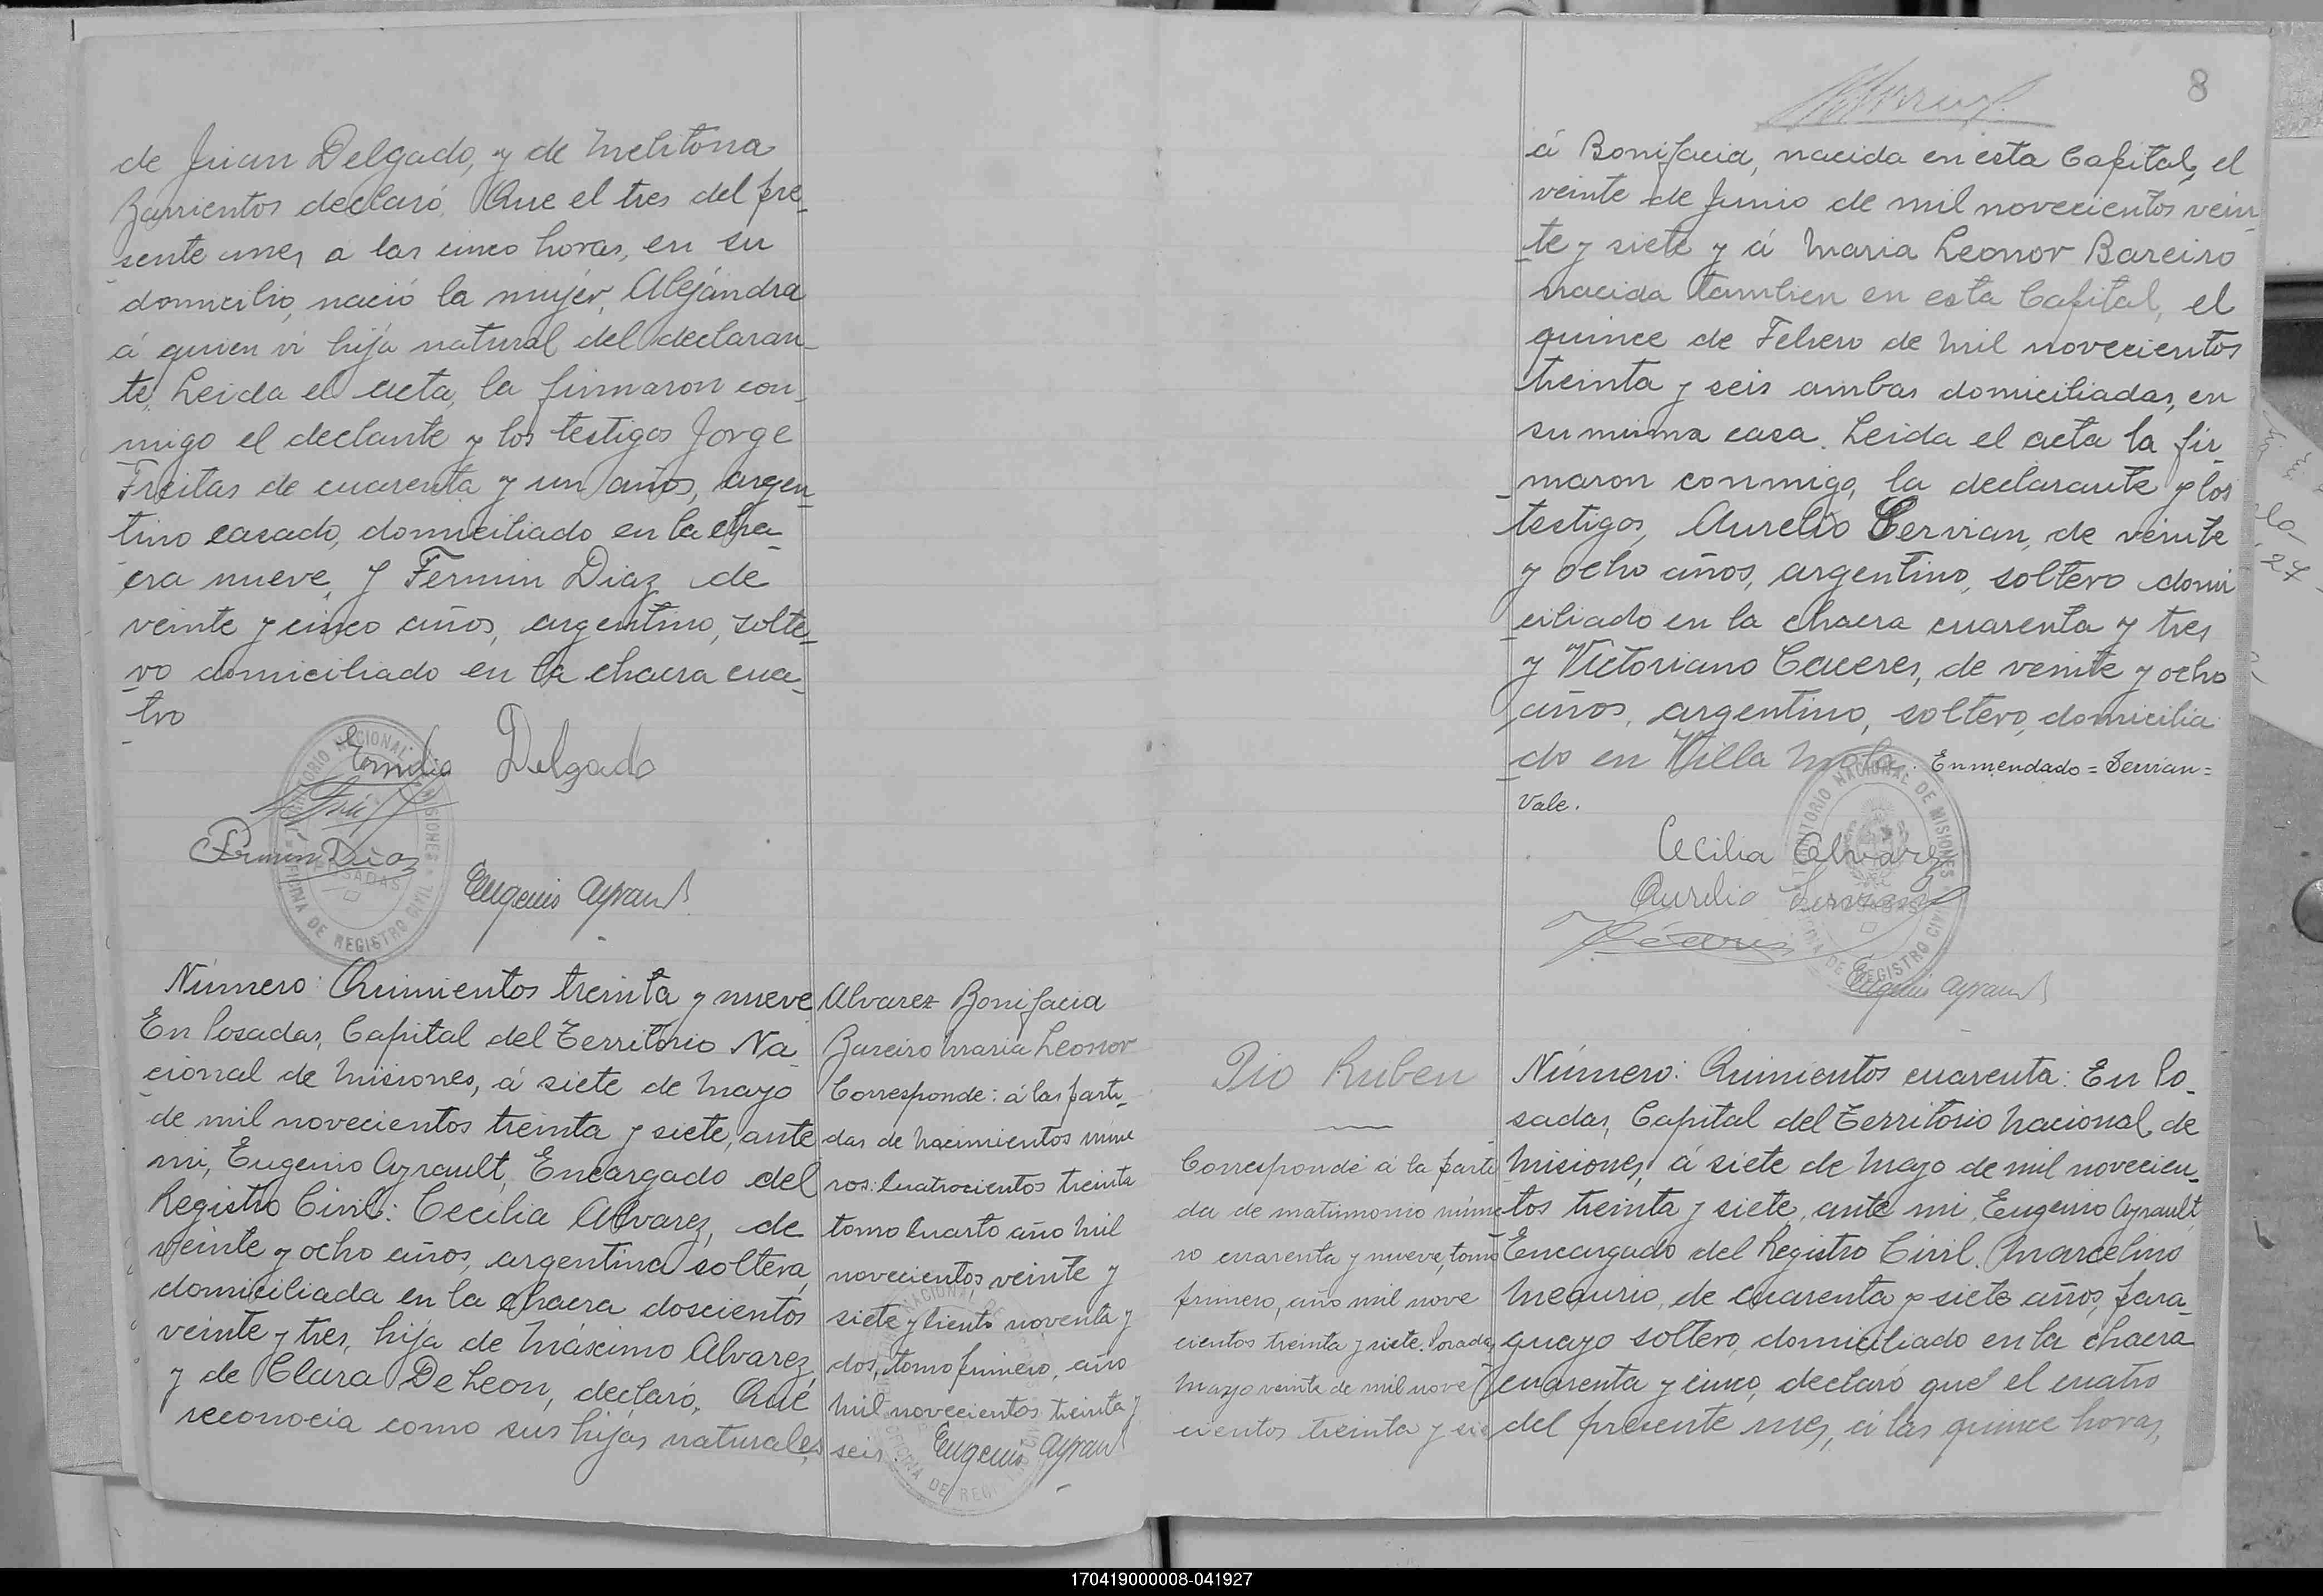 de Juan Delgado, y de Melitona
Barrientos declaró. Que el tres del pre_
sente mes, a las cinco horas, en su
domicilio, nació la mujer, Alejándra
á quien vi hija natural del declaran_
te. Leida el acta, la firmaron con_
migo el declante y los testigos Jorge
Freitas de cuarenta y un años, argen_
tino casado, domiciliado en la cha_
cra nueve, y Fermin Diaz de
veinte y cinco años, argentino, solte_
ro domiciliado en la chacra cua_
tro
Emilio Delgado
Fermin Diaz
Eugenio Ayrault
TERRITORIO NACIONAL DE MISIONES
POSADAS
OFICINA DE REGISTRO CIVIL
Número: Quinientos treinta y nueve
En Posadas, Capital del Territorio Na_
cional de Misiones, á siete de Mayo
de mil novecientos treinta y siete, ante
mi, Eugenio Ayrault, Encargado del
Registro Civil: Cecilia Alvarez, de
veinte y ocho años, argentina soltera,
domiciliada en la chacra doscientos
veinte y tres, hija de Máximo Alvarez,
y de Clara De Leon, declaró. Que
reconocia como sus hijas naturales,
Alvarez Bonifacia
Bareiro Maria Leonor
Corresponde: á las parti_
das de Nacimientos núme
ros: Cuatrocientos treinta
tomo Cuarto año Mil
novecientos veinte y
siete y Ciento noventa y
dos, tomo primero, año
Mil novecientos treinta y
seis. Eugenio Ayrault
8
á Bonifacia, nacida en esta Capital, el
veinte de Junio de mil novecientos vein_
te y siete y á Maria Leonor Bareiro
nacida tambien en esta Capital, el
quince de Febrero de Mil novecientos
treinta y seis ambas domiciliadas, en
su misma casa. Leida el acta la fir_
maron conmigo, la declarante y los
testigos, Aurelio Servian, de veinte
y ocho años, argentino, soltero domi
ciliado en la chacra cuarenta y tres
y Victoriano Caceres, de veinte y ocho
años, argentino, soltero, domicilia_
do en Villa Mola. Enmendado = Servian =
Vale.
Cecilia Alvarez
Aurelio Servian
Eugenio Ayrault
TERRITORIO NACIONAL DE MISIONES
POSADAS
OFICINA DE REGISTRO CIVIL
Pio Ruben
Corresponde á la parti
da de matrimonio núme
ro cuarenta y nueve, tomo
primero, año mil nove
cientos treinta y siete. Posadas,
Mayo veinte de mil nove
cientos treinta y sie
Número: Quinientos cuarenta: En Po_
sadas, Capital del Territorio Nacional de
Misiones, á siete de Mayo de mil novecien_
tos treinta y siete, ante mi, Eugenio Ayrault,
Encargado del Registro Civil. Marcelino
de cuarenta y siete años, para_
guayo soltero, domiciliado en la chacra
cuarenta y cinco, declaró que el cuatro
del presente mes, á las quince horas,
170419000008-041927